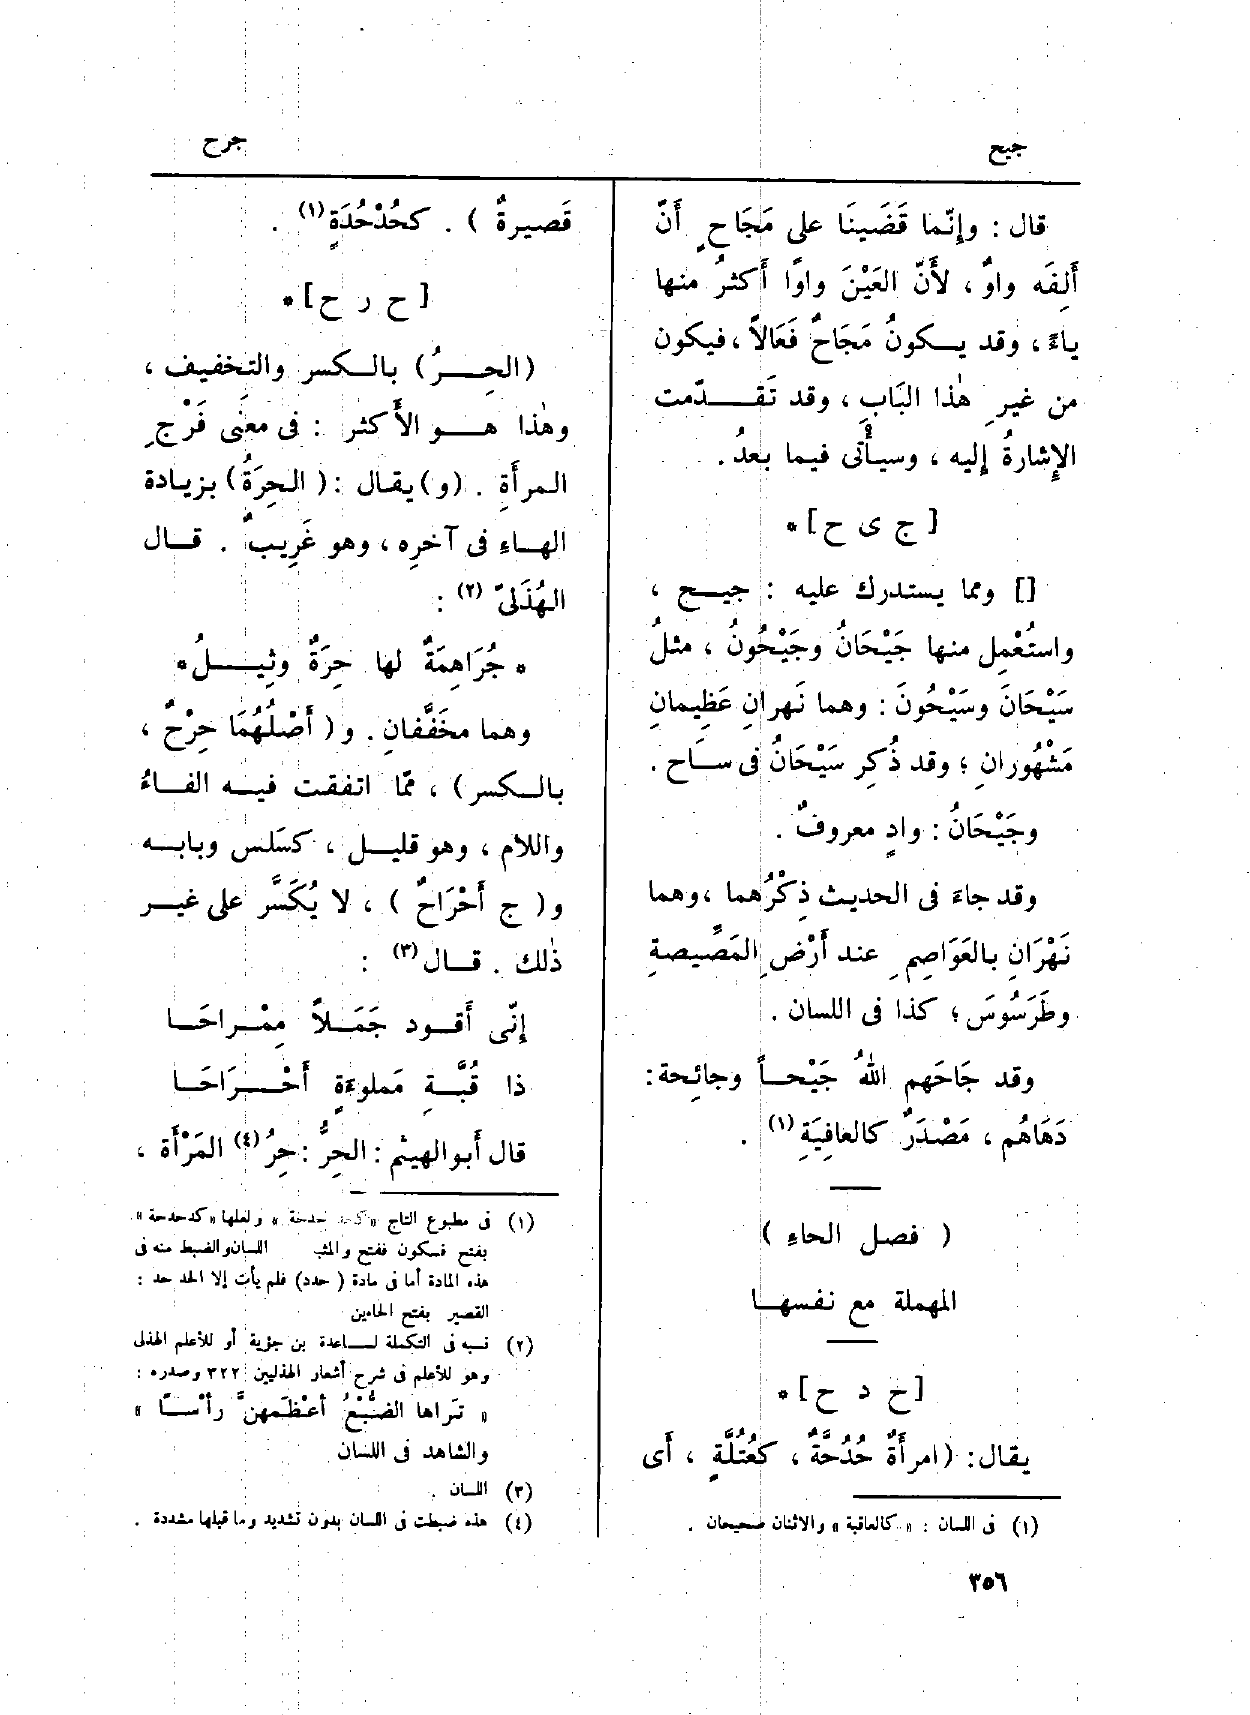 جيح
جرح
قال : وإنّما قَضَينَا على مَجَاحٍ أَنّ
أَلِفَه واوٌ ، لأَنّ العَيْنَ واوًا أَكثرُ منها
ياءً ، وقد يـكونُ مَجَاحٌ فَعَالاً ، فيكون
من غيرِ هٰذا البَابِ ، وقد تَقـدّمت
الإِشارةُ إِليه ، وسيأْتى فيما بعدُ .
[ ج ى ح ] *
[] ومما يستدرك عليه : جيـح ،
واستُعْمِل منها جَيْحَانُ وجَيْحُونُ ، مثلُ
سَيْحَانَ وسَيْحُونَ : وهما نَهرانِ عَظِيمانِ
مَشْهُورانِ ؛ وقد ذُكِر سَيْحَانُ فى سـاح .
وجَيْحَانُ : وادٍ معروفٌ .
وقد جاءَ فى الحديث ذِكْرُهما ، وهما
نَهْرَانِ بالعَوَاصِمِ عند أَرْضِ المَصِّيصةِ
وطَرَسُوسَ ؛ كذا فى اللسان .
وقد جَاحَهم اللهُ جَيْحـاً وجائِحة :
دَهَاهُم ، مَصْدَرٌ كالعافِيَةِ (١) .
( فصل الحاءِ )
المهملة مع نفسهـا
[ ح د ح ] *
يقال : (امرأَةٌ حُدُحَّةٌ ، كعُتُلَّةٍ ، أَى
(١) فى اللسان : « كالعاقبة » والاثنان صحيحان .
٣٥٦
قَصيرةٌ ) . كحُدْحُدَةٍ (١) .
[ ح ر ح ] *
(الحِـرُ) بالـكسر والتخفيف ،
وهٰذا هـو الأَكثر : فى معنَى فَرْجِ
المرأَةِ . (و) يقال : ( الحِرَةُ ) بزيادة
الهاءِ فى آخرِه ، وهو غَرِيبٌ . قـال
الهُذَلىّ (٢) :
* جُرَاهِمَةٌ لها حِرَةٌ وثِيـلُ *
وهما مخَفَّفانِ . و ( أَصْلُهُمَا حِرْحٌ ،
بالـكسر ) ، ممّا اتفقت فيـه الفـاءُ
واللام ، وهو قليـل ، كسَلَس وبابـه
و ( ج أَحْرَاحٌ ) ، لا يُكَسَّر على غيـر
ذٰلك . قـال (٣) :
إِنّى أَقـود جَمَـلاً مِمْـراحَـا
ذا قُبَّـةٍ مَملوءَةٍ أَحْـرَاحَـا
قال أَبو الهيثم : الحِرُّ : حِرُ (٤) المَرْأَة ،
(١) فى مطبوع التاج « كحدحدحة » ولعلها « كدحدحة »
بفتح فسكون ففتح والمثبـ اللسان والضبط منه فى
هذه المادة أما فى مادة ( حدد ) فلم يأت إلا الحد حد :
القصير بفتح الحاءين
(٢) نسبه فى التكملة لساعدة بن جؤية أو للأعلم الهذلى
وهو للأعلم فى شرح أشعار الهذليين ٣٢٢ وصدره :
« تَراها الضَّبْعُ أعْظَمهنّ رأْسـاً »
والشاهد فى اللسان
(٣) اللسان .
(٤) هذه ضبطت فى اللسان بدون تشديد وما قبلها مشددة .